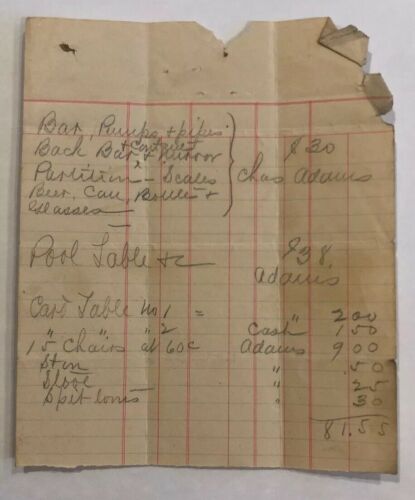 Bar, Pumps, + pipes
+ Cabinet
Back Bar + Mirror $30
Partition - Scales Chas Adams
Beer, Can, Bottles +
Glasses
Pool Table &c $38
Adams
Card Table No 1 = " 2 00
" " " 2 Cash 1 50
15 Chairs at 60c Adams 9 00
" 50
Stool " 25
Spittoons " 30
81.55